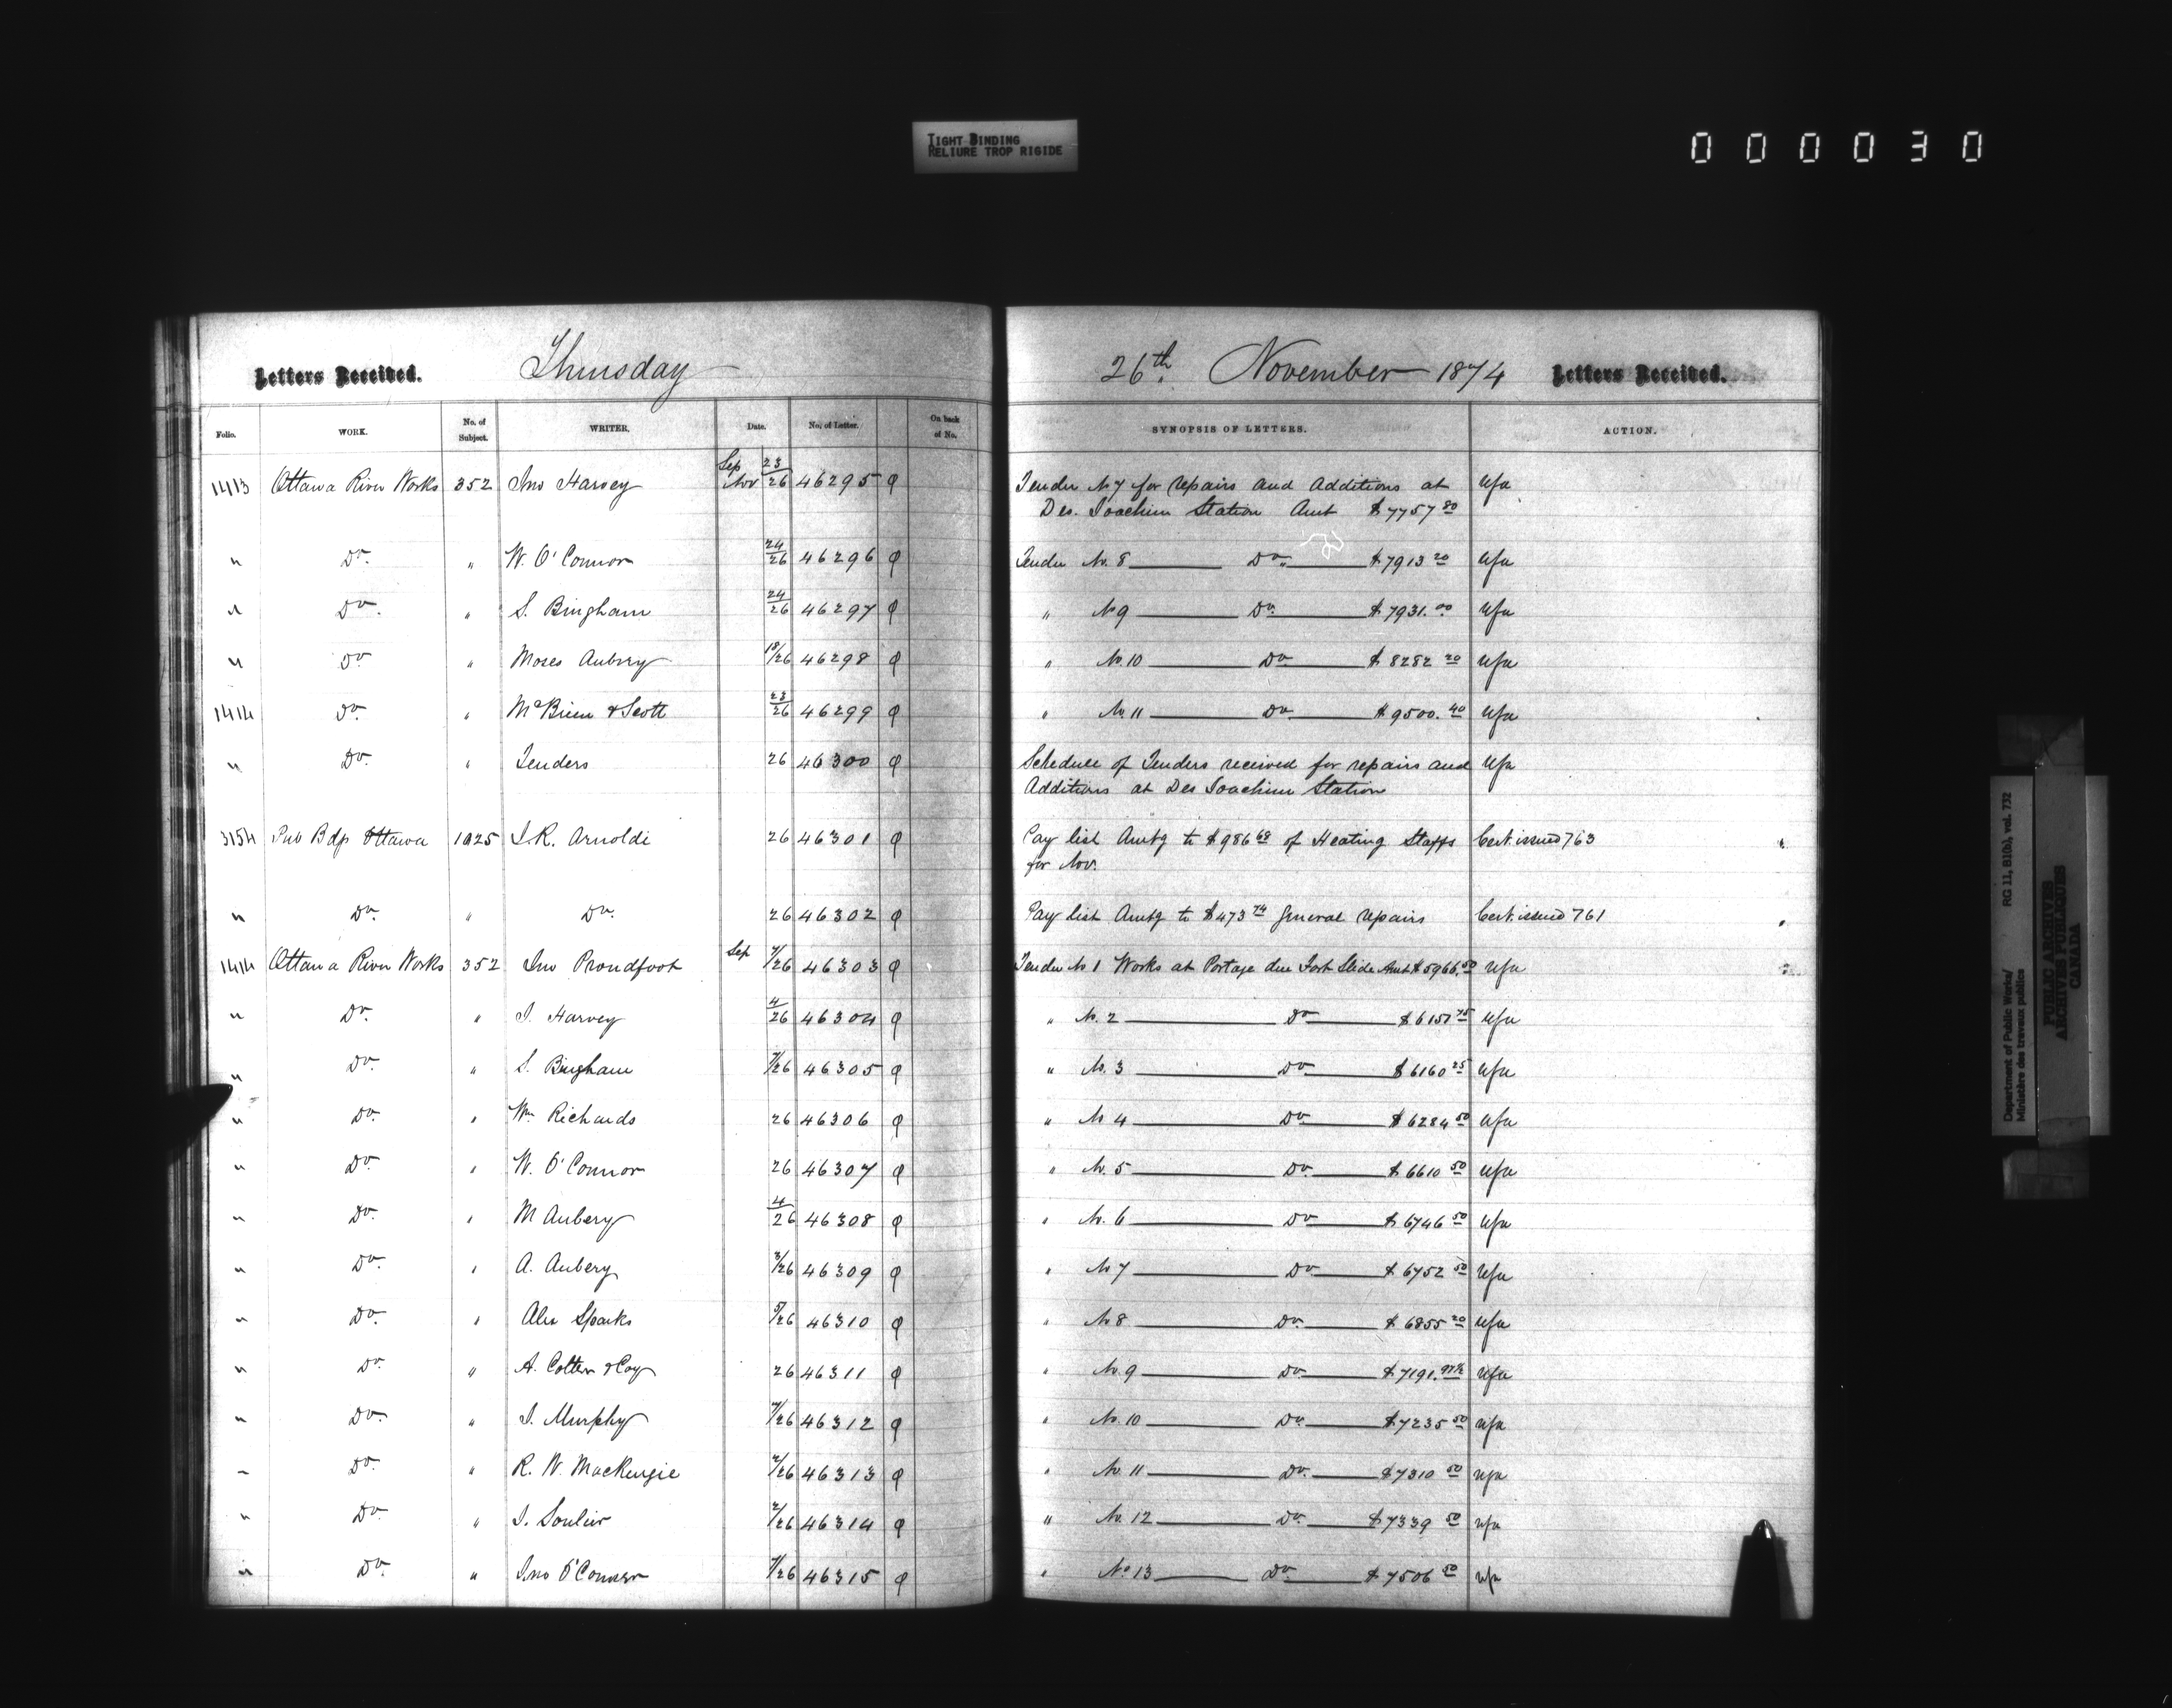 TIGHT BINDING
RELIURE TROP RIGIDE
000030
Letters Received. Thursday 26th November 1874 Letters Received.
Folio. WORK. No. of Subject. WRITER. Date. No. of Letter. On back of No. SYNOPSIS OF LETTERS. ACTION.
Sep 23
1413 Ottawa River Works 352 Jno Harvey Nov 26 46295 Tender No 7 for repairs and additions at
Des. Joachim Station Amt $7757 80
" Do. " W. O'Connor 24/26 46296 Tender No. 8 Do. $7913 20
" Do. " S. Bingham 24/26 46297 " No 9 Do. $7931. 00
" Do " Moses Aubrey 18/26 46298 " No. 10 Do $8282 20
1414 Do. " McBrien & Scott 23/26 46299 " No. 11 Do $9500. 40
" Do. " Tenders 26 46300 Schedule of Tenders received for repairs and
Additions at Des Joachim Station
3154 Pub Bdgs Ottawa 1025 J.R. Arnoldi 26 46301 Pay list Amtg to $986 68 of Heating Staffs Cert. issued 763
for Nov.
" Do. " Do. 26 46302 Pay list Amtg to $473 74 general repairs Cert. issued 761
1414 Ottawa River Works 352 Jno Proudfoot Sep 7/26 46303 Tender No 1 Works at Portage due Fort Slide Amt $5966. 50
" Do. " J. Harvey 4/26 46304 " No. 2 Do $6157 75
" Do. " S. Bingham 7/26 46305 " No. 3 Do $6160 25
" Do. " Wm. Richards 26 46306 " No 4 Do. $6284 50
" Do. " W. O'Connor 26 46307 " No. 5 Do. $6610 50
" Do. " M Aubery 4/26 46308 " No. 6 Do $6746 50
" Do. " A. Aubery 3/26 46309 " No 7 Do $6752 50
" Do. " Alex Sparks 5/26 46310 " No 8 Do. $6855 20
" Do. " A. Cotten & Coy 26 46311 " No. 9 Do. $7191.
" Do. " J. Murphy 7/26 46312 " No. 10 Do. $7235 50
" Do. " R. W. MacKenzie 2/26 46313 " No. 11 Do. $7310 50
" Do. " J. Soulier 2/26 46314 " No. 12 Do. $7339 50
" Do. " Jno O'Connor 7/26 46315 " No 13 Do. $7506 50
Department of Public Works/ RG 11, B1(b), vol. 732
Ministère des travaux publics
PUBLIC ARCHIVES
ARCHIVES PUBLIQUES
CANADA